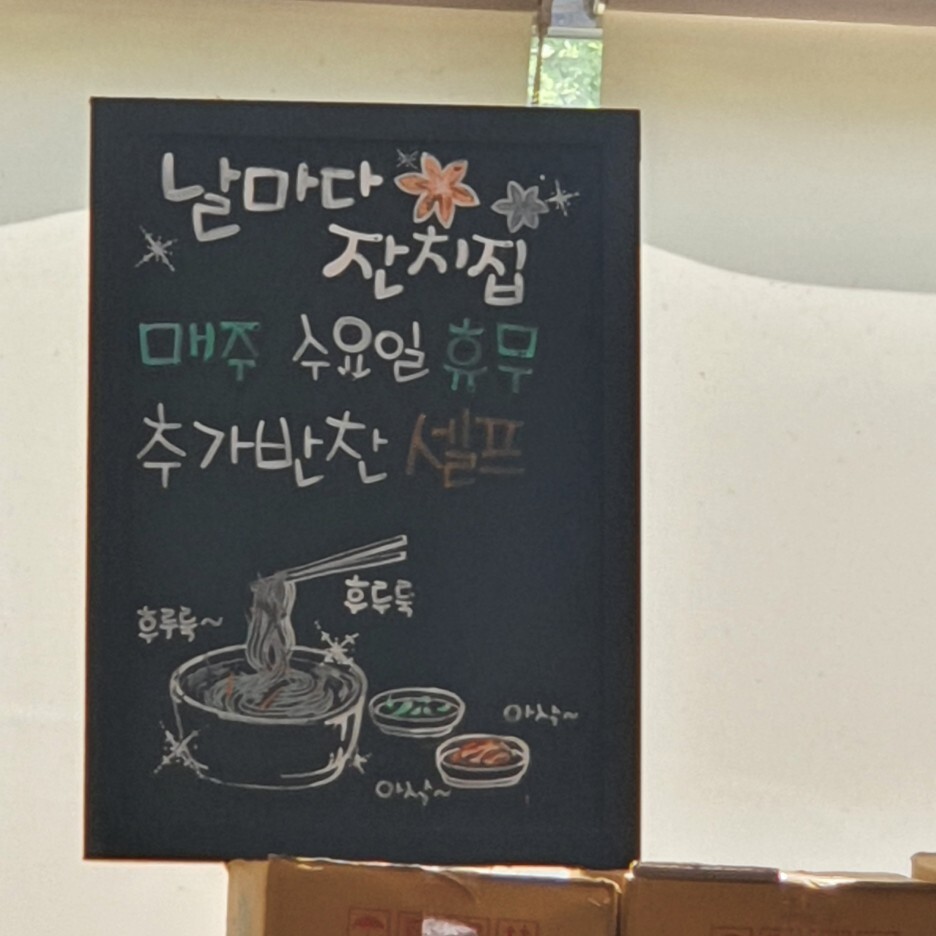 날마다
잔치집
매주 수요일 휴무
추가반찬 셀프
후두둑
후루룩~
아삭~
아삭~